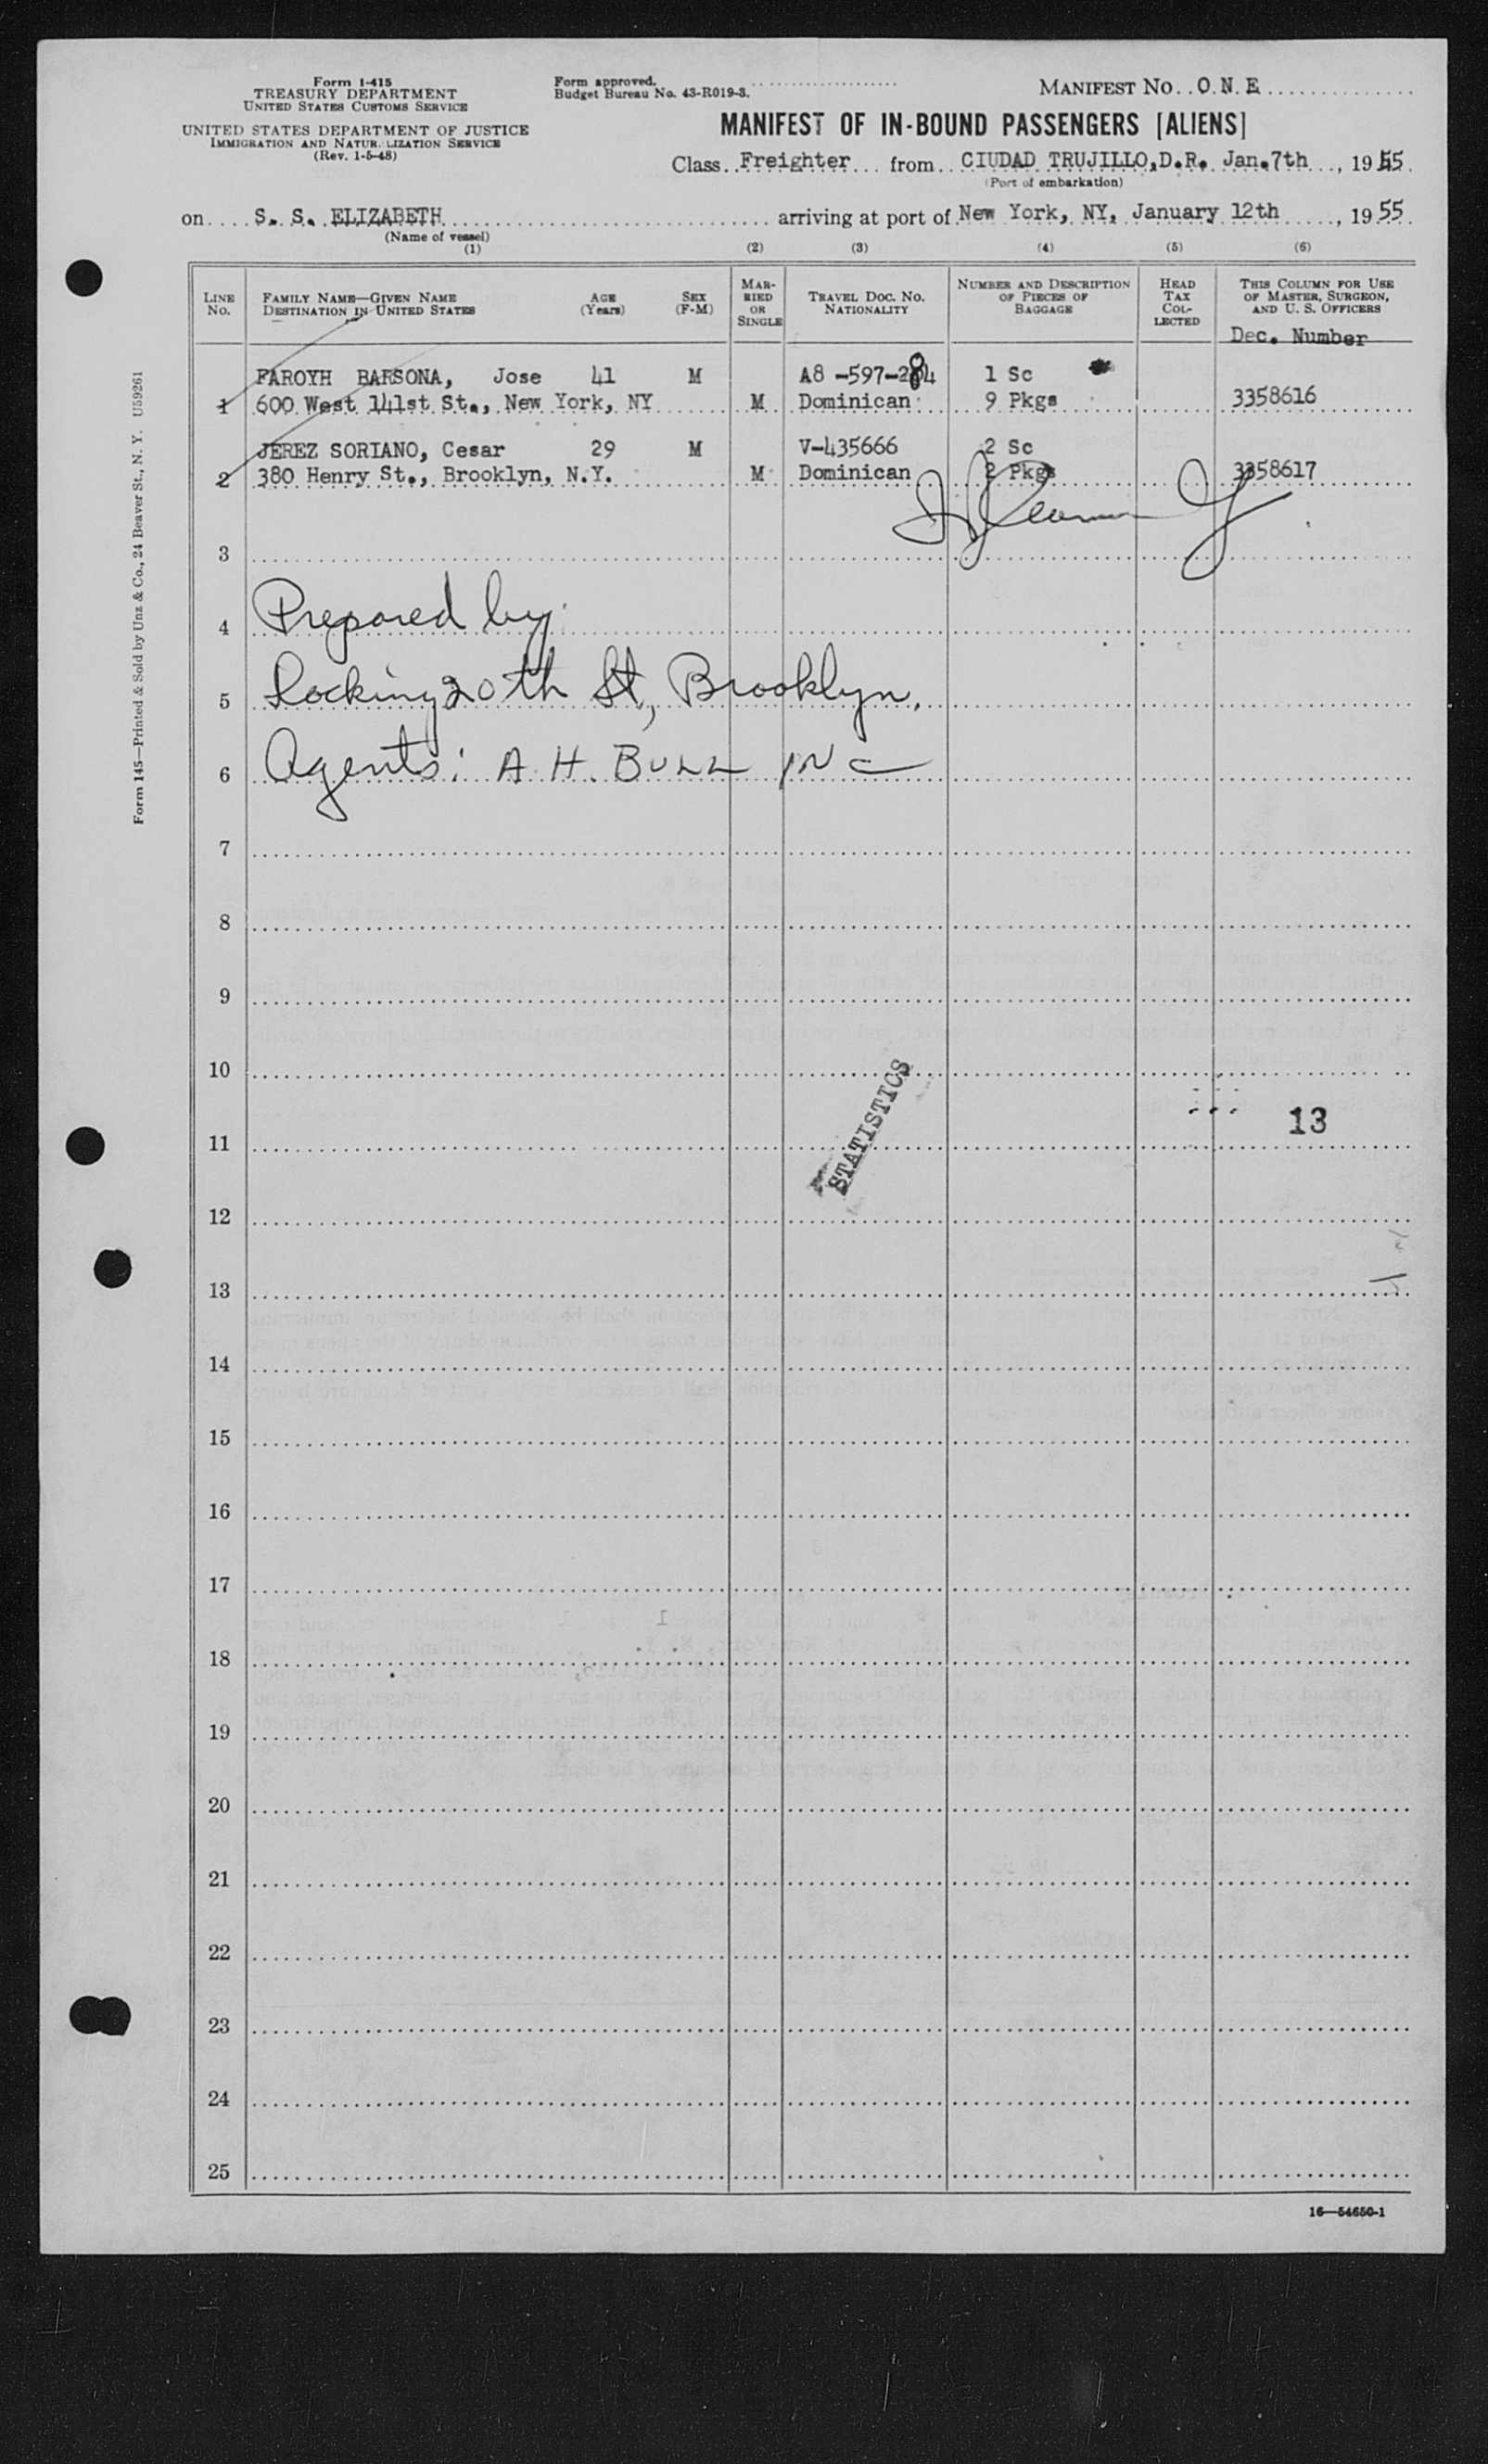 Form I-415
TREASURY DEPARTMENT
UNITED STATES CUSTOMS SERVICE
UNITED STATES DEPARTMENT OF JUSTICE
IMMIGRATION AND NATURALIZATION SERVICE
(Rev. 1-5-48)
Form approved.
Budget Bureau No. 43-R019-3.
MANIFEST NO. O.N.E
MANIFEST OF IN-BOUND PASSENGERS [ALIENS]
Class Freighter from CIUDAD TRUJILLO, D.R. Jan. 7th, 1955
(Port of embarkation)
on S. S. ELIZABETH arriving at port of New York, NY, January 12th, 1955
(Name of vessel)
(1) (2) (3) (4) (5) (6)
LINE NO.
FAMILY NAME—GIVEN NAME
DESTINATION IN UNITED STATES
AGE (Years)
SEX (F-M)
MARRIED OR SINGLE
TRAVEL DOC. NO.
NATIONALITY
NUMBER AND DESCRIPTION OF PIECES OF BAGGAGE
HEAD TAX COLLECTED
THIS COLUMN FOR USE OF MASTER, SURGEON, AND U. S. OFFICERS
Dec. Number
FAROYH BARSONA, Jose 41 M A8-597-284 1 Sc
1 600 West 141st St., New York, NY M Dominican 9 Pkgs 3358616
JEREZ SORIANO, Cesar 29 M V-435666 2 Sc
2 380 Henry St., Brooklyn, N.Y. M Dominican 2 Pkgs 3358617
3
4 Prepared by:
5 Docking 20th St, Brooklyn.
6 Agents: A. H. BULL INC
7
8
9
10
STATISTICS
13
11
12
13
14
15
16
17
18
19
20
21
22
23
24
25
16—54650-1
Form 145—Printed & Sold by Unz & Co., 24 Beaver St., N. Y. U59261